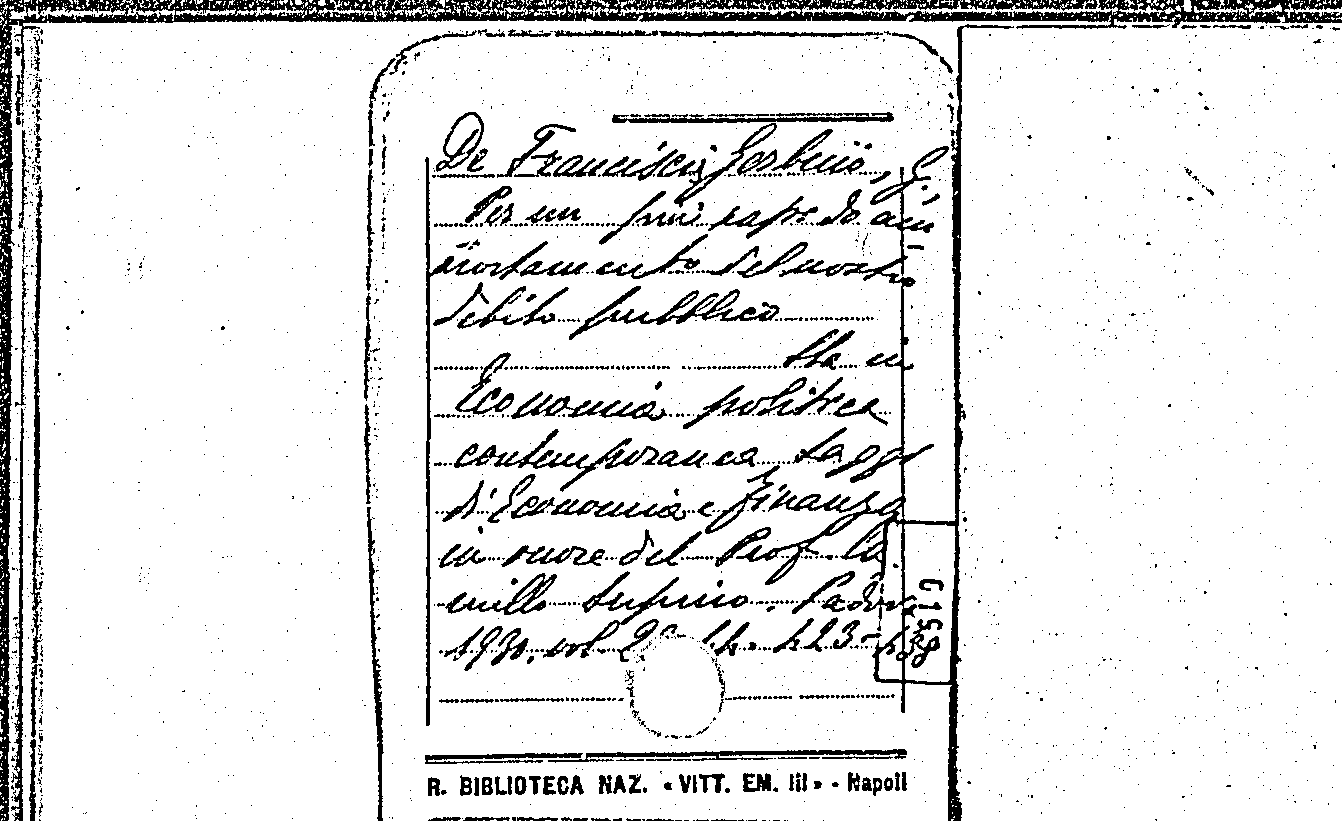 De Francisci Gerbino, G.,
Per un più rapido am
mortamento del nostro
debito pubblico
Sta in
Economia politica
contemporanea. Saggi
di Economia e finanza
in onore del Prof. Ca
millo Supino. Padova
1930. vol 2º
R. BIBLIOTECA NAZ. «VITT. EM. III» - Napoli